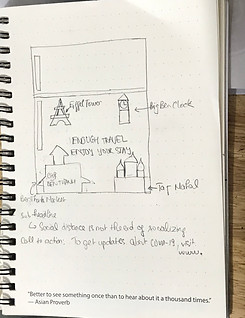 Eiffel Tower
Big Ben Clock
ENOUGH TRAVEL
ENJOY YOUR STAY
Taj Mahal
Sub headline
↳ Social distance is not the end of socializing
Call to action: To get updates about COVID-19, visit
www.
"Better to see something once than to hear about it a thousand times."
— Asian Proverb